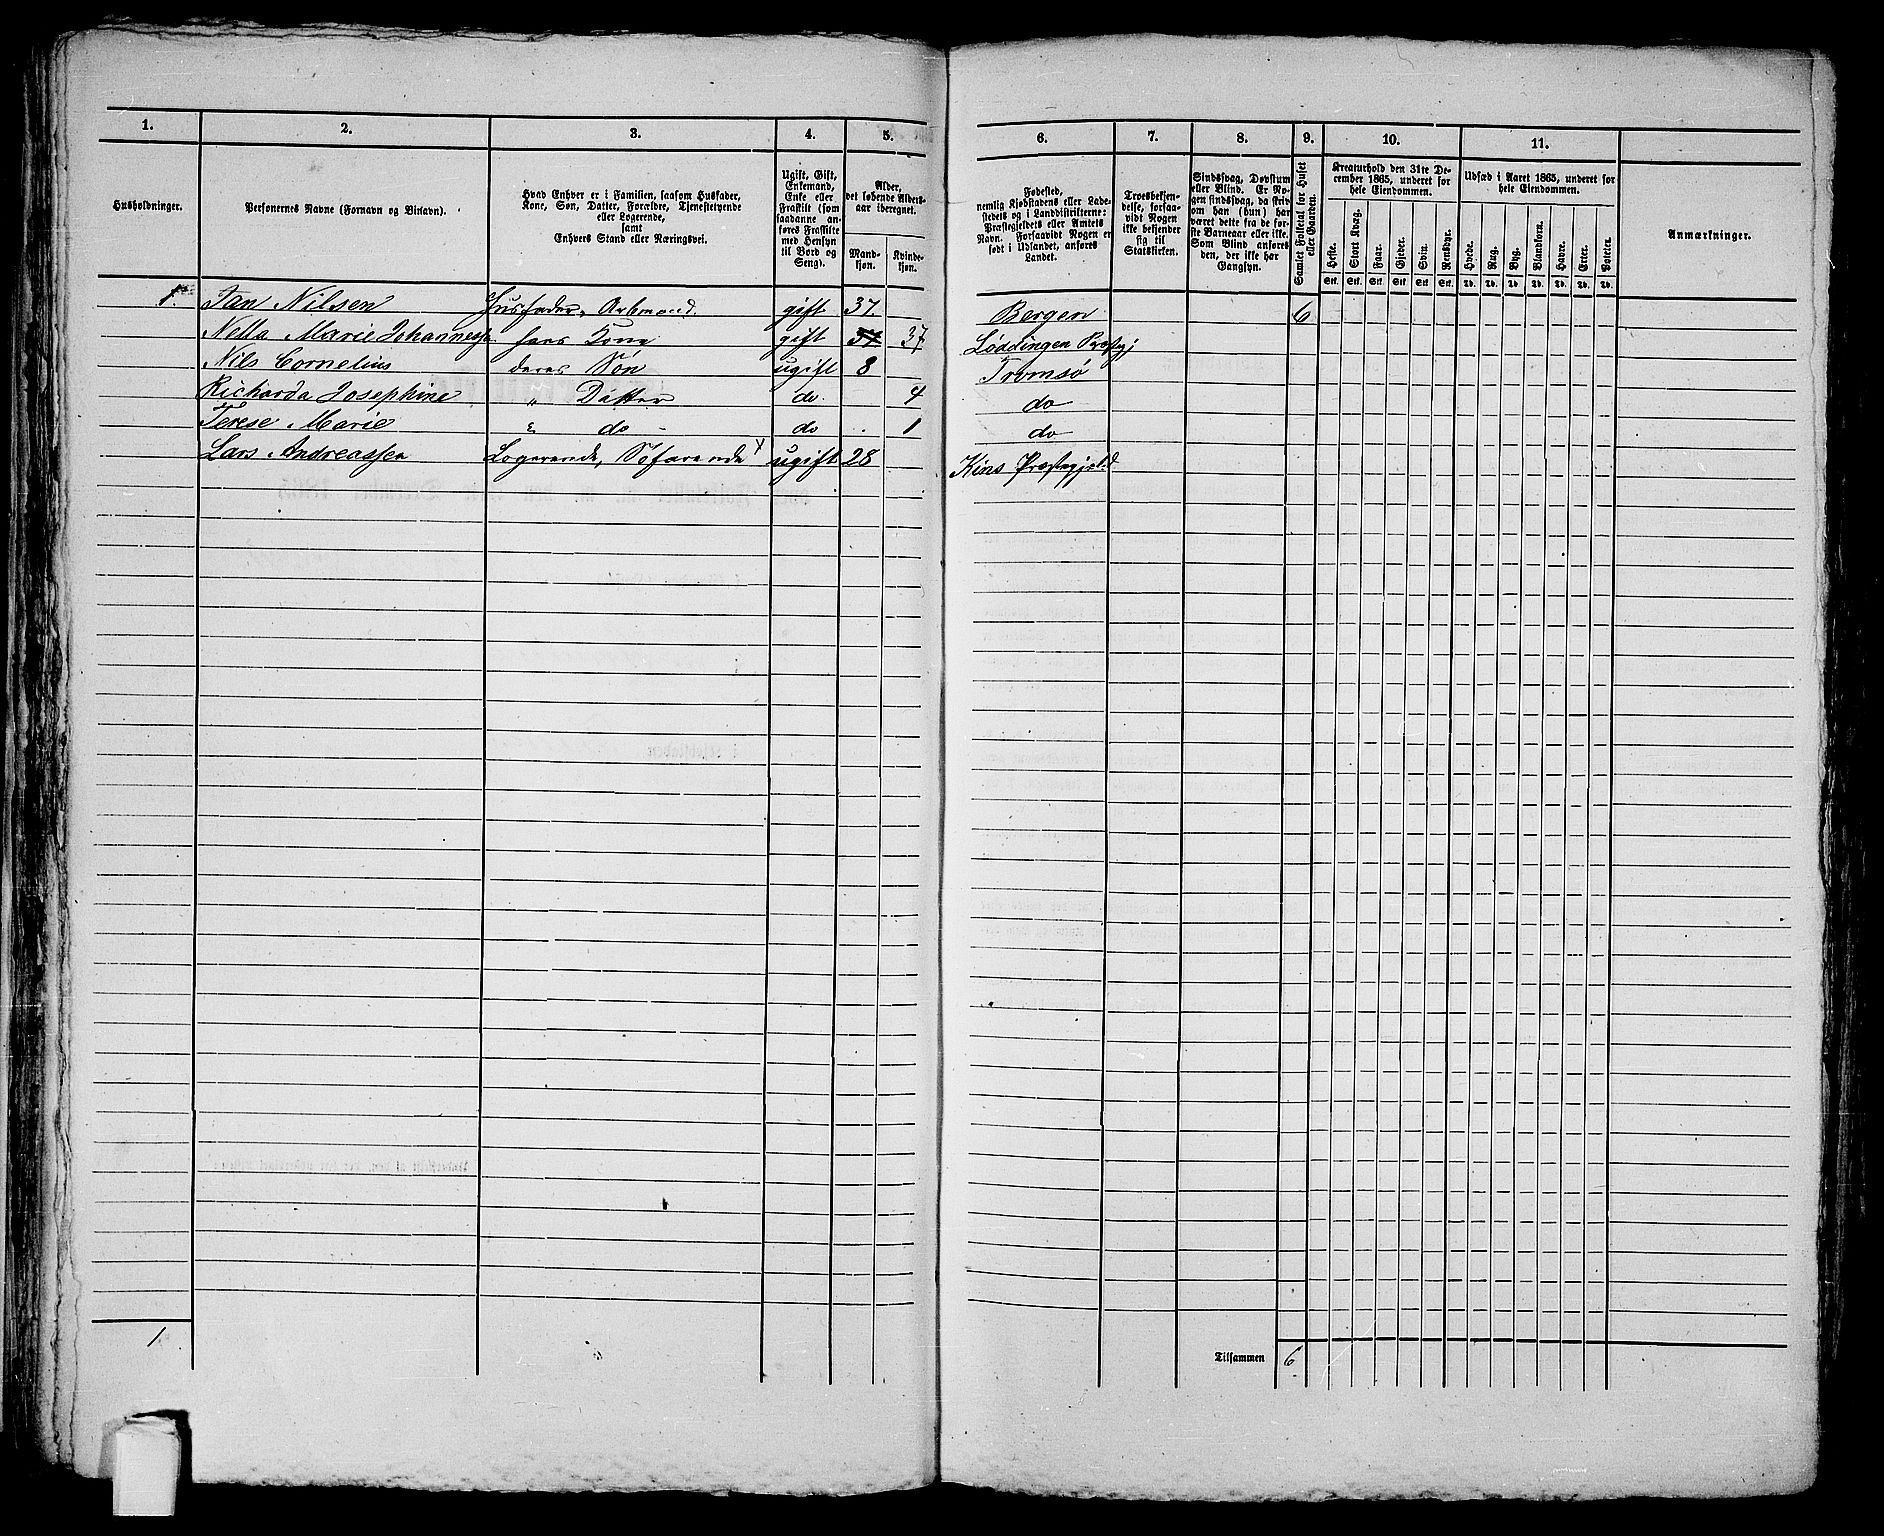 1. 2. 3. 4. 5. 6. 7. 8. 9. 10. 11.
Husholdninger.
Personernes Navne (Fornavn og Binavn).
Hvad Enhver er i Familien, saasom Husfader,
Kone, Søn, Datter, Forældre, Tjenestetyende
eller Logerende,
samt
Enhvers Stand eller Næringsvei.
Ugift, Gift,
Enkemand,
Enke eller
Fraskilt (som
saadanne an-
føres Fraskilte
med Hensyn
til Bord og
Seng).
Alder,
det løbende Alders-
aar iberegnet.
Mand-
kjøn.
Kvinde-
kjøn.
Fødested,
nemlig Kjøbstadens eller Lade-
stedets og i Landdistrikterne:
Præstegjeldets eller Amtets
Navn. Forsaavidt Nogen er
født i Udlandet, anføres
Landet.
Troesbekjen-
delse, forsaa-
vidt Nogen
ikke bekjender
sig til
Statskirken.
Sindssvag, Døvstum
eller Blind. Er No-
gen sindssvag, da skriv
om han (hun) har
været dette fra de før-
ste Barneaar eller ikke.
Som Blind anføres
den, der ikke har
Gangsyn.
Samlet Folketal for Huset
eller Gaarden.
Kreaturhold den 31te De-
cember 1865, underet for
hele Eiendommen.
Heste.
Stort Kvæg.
Faar.
Gjeder.
Svin.
Rensdyr.
Stk. Stk. Stk. Stk. Stk. Stk.
Udsæd i Aaret 1865, underet for
hele Eiendommen.
Hvede.
Rug.
Byg.
Blandkorn.
Havre.
Erter.
Poteter.
Td. Td. Td. Td. Td. Td. Td.
Anmærkninger.
1. Jan Nilsen Husfader, Arbmand. gift 37. Bergen 6
Netta Marie Johannesn. hans Kone gift 37 37 Løddingen Præstgj
Nils Cornelius deres Søn ugift 8 Tromsø
Richarda Josephine " Datter do. 4 do
Terese Marie " do - do . 1 do
Lars Andreassen Logerende, Søfarende x ugift 28 Kins Præstegjeld
1
Tilsammen 6